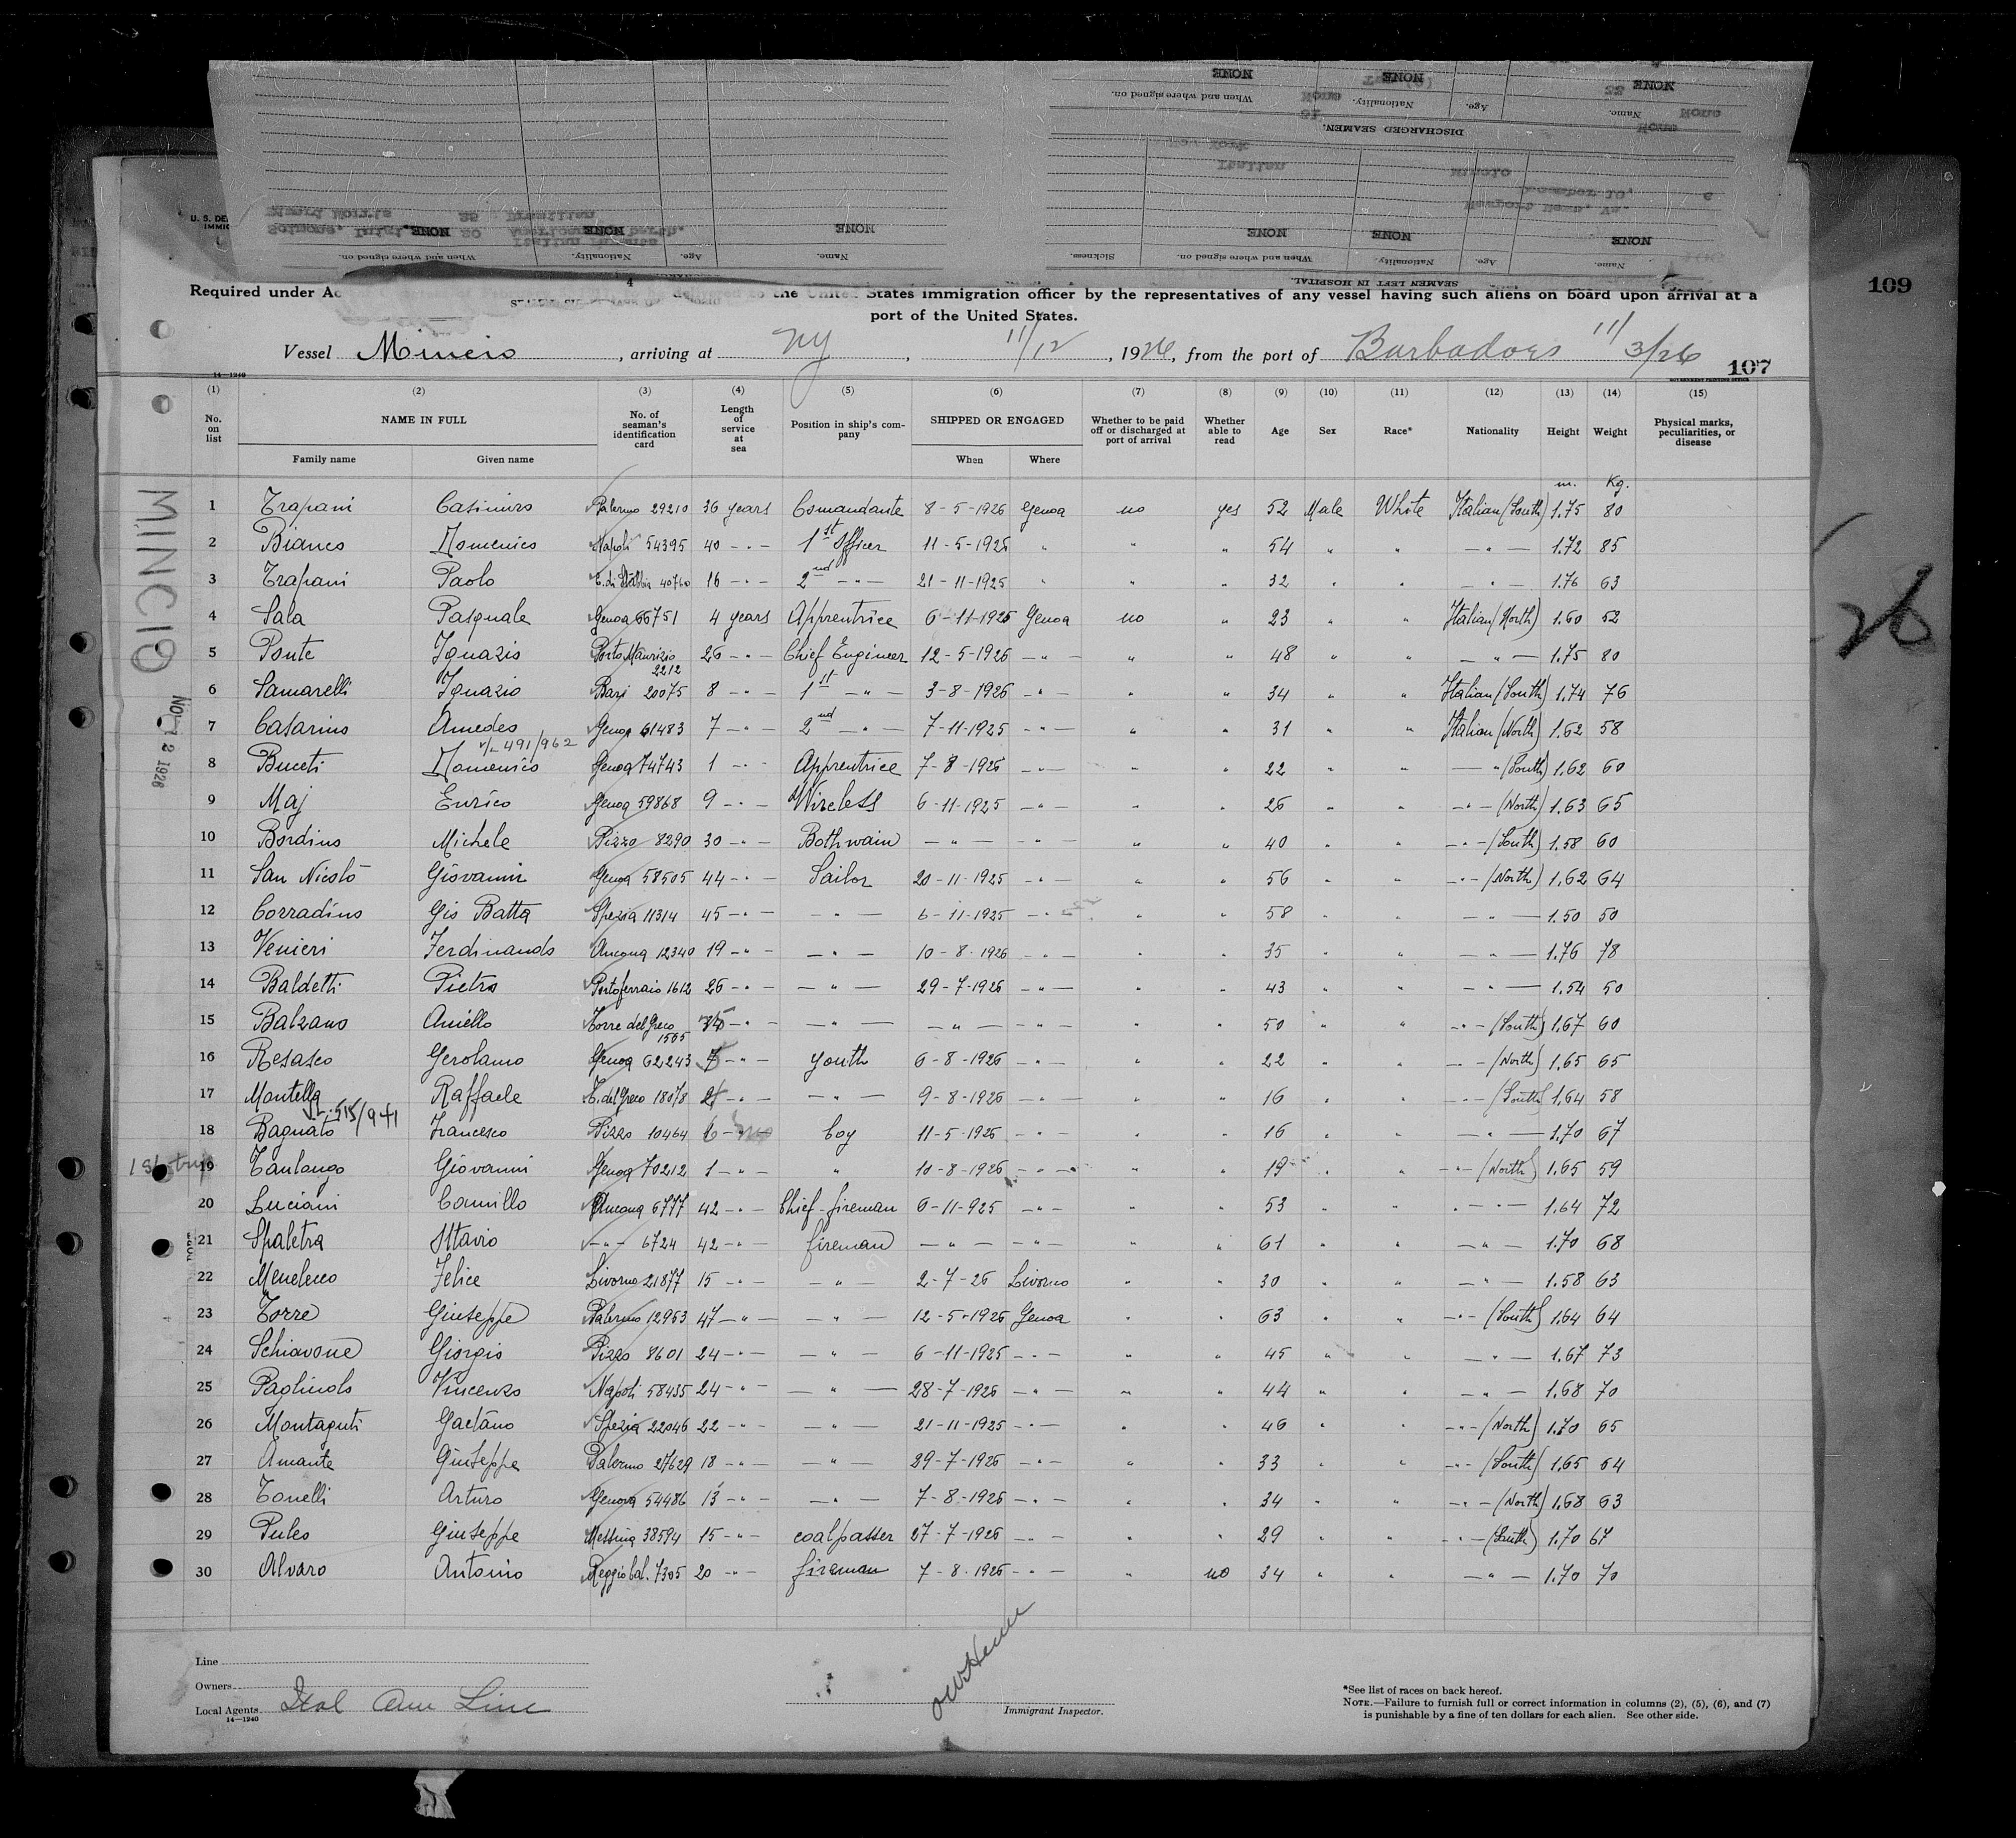 U. S. DE
IMMIG
NONE
When and where signed on.
Nationality.
Age.
Name.
DISCHARGED SEAMEN.
NONE
When and where signed on.
Nationality.
Age.
Name.
NONE
Sickness.
When and where signed on.
Nationality.
Age.
Name.
SEAMEN LEFT IN HOSPITAL.
Required under Ac to the United States immigration officer by the representatives of any vessel having such aliens on board upon arrival at a
port of the United States.
Vessel Mincio, arriving at NY, 11/12, 1926, from the port of Barbadoes 11/3/26
107
109
26
MINCIO
14—1240
(1) (2) (3) (4) (5) (6) (7) (8) (9) (10) (11) (12) (13) (14) (15)
No. on list NAME IN FULL Family name Given name No. of seaman's identification card Length of service at sea Position in ship's company SHIPPED OR ENGAGED When Where Whether to be paid off or discharged at port of arrival Whether able to read Age Sex Race* Nationality Height Weight Physical marks, peculiarities, or disease
m. Kg.
1 Trapani Casimiro Palermo 29210 36 years Comandante 8-5-1926 Genoa no yes 52 Male White Italian (South) 1.75 80
2 Bianco Domenico Napoli 54395 40 -"- 1st Officer 11-5-1926 " " " 54 " " -"- 1.72 85
3 Trapani Paolo 40760 16 -"- 2nd -"- 21-11-1925 " " " 32 " " -"- 1.76 63
4 Sala Pasquale Genoa 66751 4 years Apprentrice 6-11-1925 Genoa no " 23 " " Italian (North) 1.60 52
5 Ponte Ignazio Porto Maurizio 2212 26 -"- Chief Engineer 12-5-1926 -"- " " 48 " " -"- 1.75 80
6 Samarelli Ignazio Bari 20075 8 -"- 1st -"- 3-8-1926 -"- " " 34 " " Italian (South) 1.74 76
7 Casarino Amedeo Genoa 61483 7 -"- 2nd -"- 7-11-1925 -"- " " 31 " " Italian (North) 1.62 58
491/962
8 Buceti Domenico Genoa 74743 1 -"- Apprentrice 7-8-1926 -"- " " 22 " " -"- (South) 1.62 60
9 Maj Enrico Genoa 59868 9 -"- Wireless 6-11-1925 -"- " " 26 " " -"- (North) 1.63 65
10 Bordino Michele Pizzo 8290 30 -"- Bothwain -"- -"- " " 40 " " -"- (South) 1.58 60
11 San Nicolò Giovanni Genoa 58505 44 -"- Sailor 20-11-1925 -"- " " 56 " " -"- (North) 1.62 64
12 Corradino Gio Batta Spezia 11314 45 -"- -"- 6-11-1925 -"- " " 58 " " -"- 1.50 50
13 Venieri Ferdinando Ancona 12340 19 -"- -"- 10-8-1926 -"- " " 35 " " -"- 1.76 78
14 Baldetti Pietro Portoferraio 1612 26 -"- -"- 29-7-1926 -"- " " 43 " " -"- 1.54 50
15 Balzano Aniello Torre del Greco 1565 -"- -"- -"- -"- " " 50 " " -"- (South) 1.67 60
16 Resasco Gerolamo Genoa 62243 -"- youth 6-8-1926 -"- " " 22 " " -"- (North) 1.65 65
17 Montella Raffaele T. del Greco 18078 -"- -"- 9-8-1926 -"- " " 16 " " -"- (South) 1.64 58
515/941
18 Bagnato Francesco Pizzo 10464 6 boy 11-5-1926 -"- " " 16 " " -"- 1.70 67
1st trip
19 Taulango Giovanni Genoa 70212 1 -"- " 10-8-1926 -"- " " 19 " " -"- (North) 1.65 59
20 Luciani Camillo Ancona 6777 42 -"- Chief-fireman 6-11-925 -"- " " 53 " " -"- 1.64 72
21 Spaletra Ottavio -"- 6724 42 -"- fireman -"- -"- " " 61 " " -"- 1.70 68
22 Meneleco Felice Livorno 21877 15 -"- -"- 2-7-26 Livorno " " 30 " " -"- 1.58 63
23 Torre Giuseppe Palermo 12963 47 -"- -"- 12-5-1926 Genoa " " 63 " " -"- (South) 1.64 64
24 Schiavone Giorgio Pizzo 8601 24 -"- -"- 6-11-1925 -"- " " 45 " " -"- 1.67 73
25 Paolinolo Vincenzo Napoli 58435 24 -"- -"- 28-7-1926 -"- " " 44 " " -"- 1.68 70
26 Montaguti Gaetano Spezia 22046 22 -"- -"- 21-11-1925 -"- " " 46 " " -"- (North) 1.70 65
27 Amante Giuseppe Palermo 27629 18 -"- -"- 29-7-1926 -"- " " 33 " " -"- (South) 1.65 64
28 Tonelli Arturo Genova 54486 13 -"- -"- 7-8-1926 -"- " " 34 " " -"- (North) 1.68 63
29 Puleo Giuseppe Messina 38594 15 -"- coalpasser 27-7-1926 -"- " " 29 " " -"- (South) 1.70 67
30 Alvaro Antonio Reggio Cal. 7305 20 -"- fireman 7-8-1926 -"- " no 34 " " -"- 1.70 70
Line
Owners
Local Agents Ital Am Line
14—1240
Immigrant Inspector.
*See list of races on back hereof.
NOTE.—Failure to furnish full or correct information in columns (2), (5), (6), and (7)
is punishable by a fine of ten dollars for each alien. See other side.